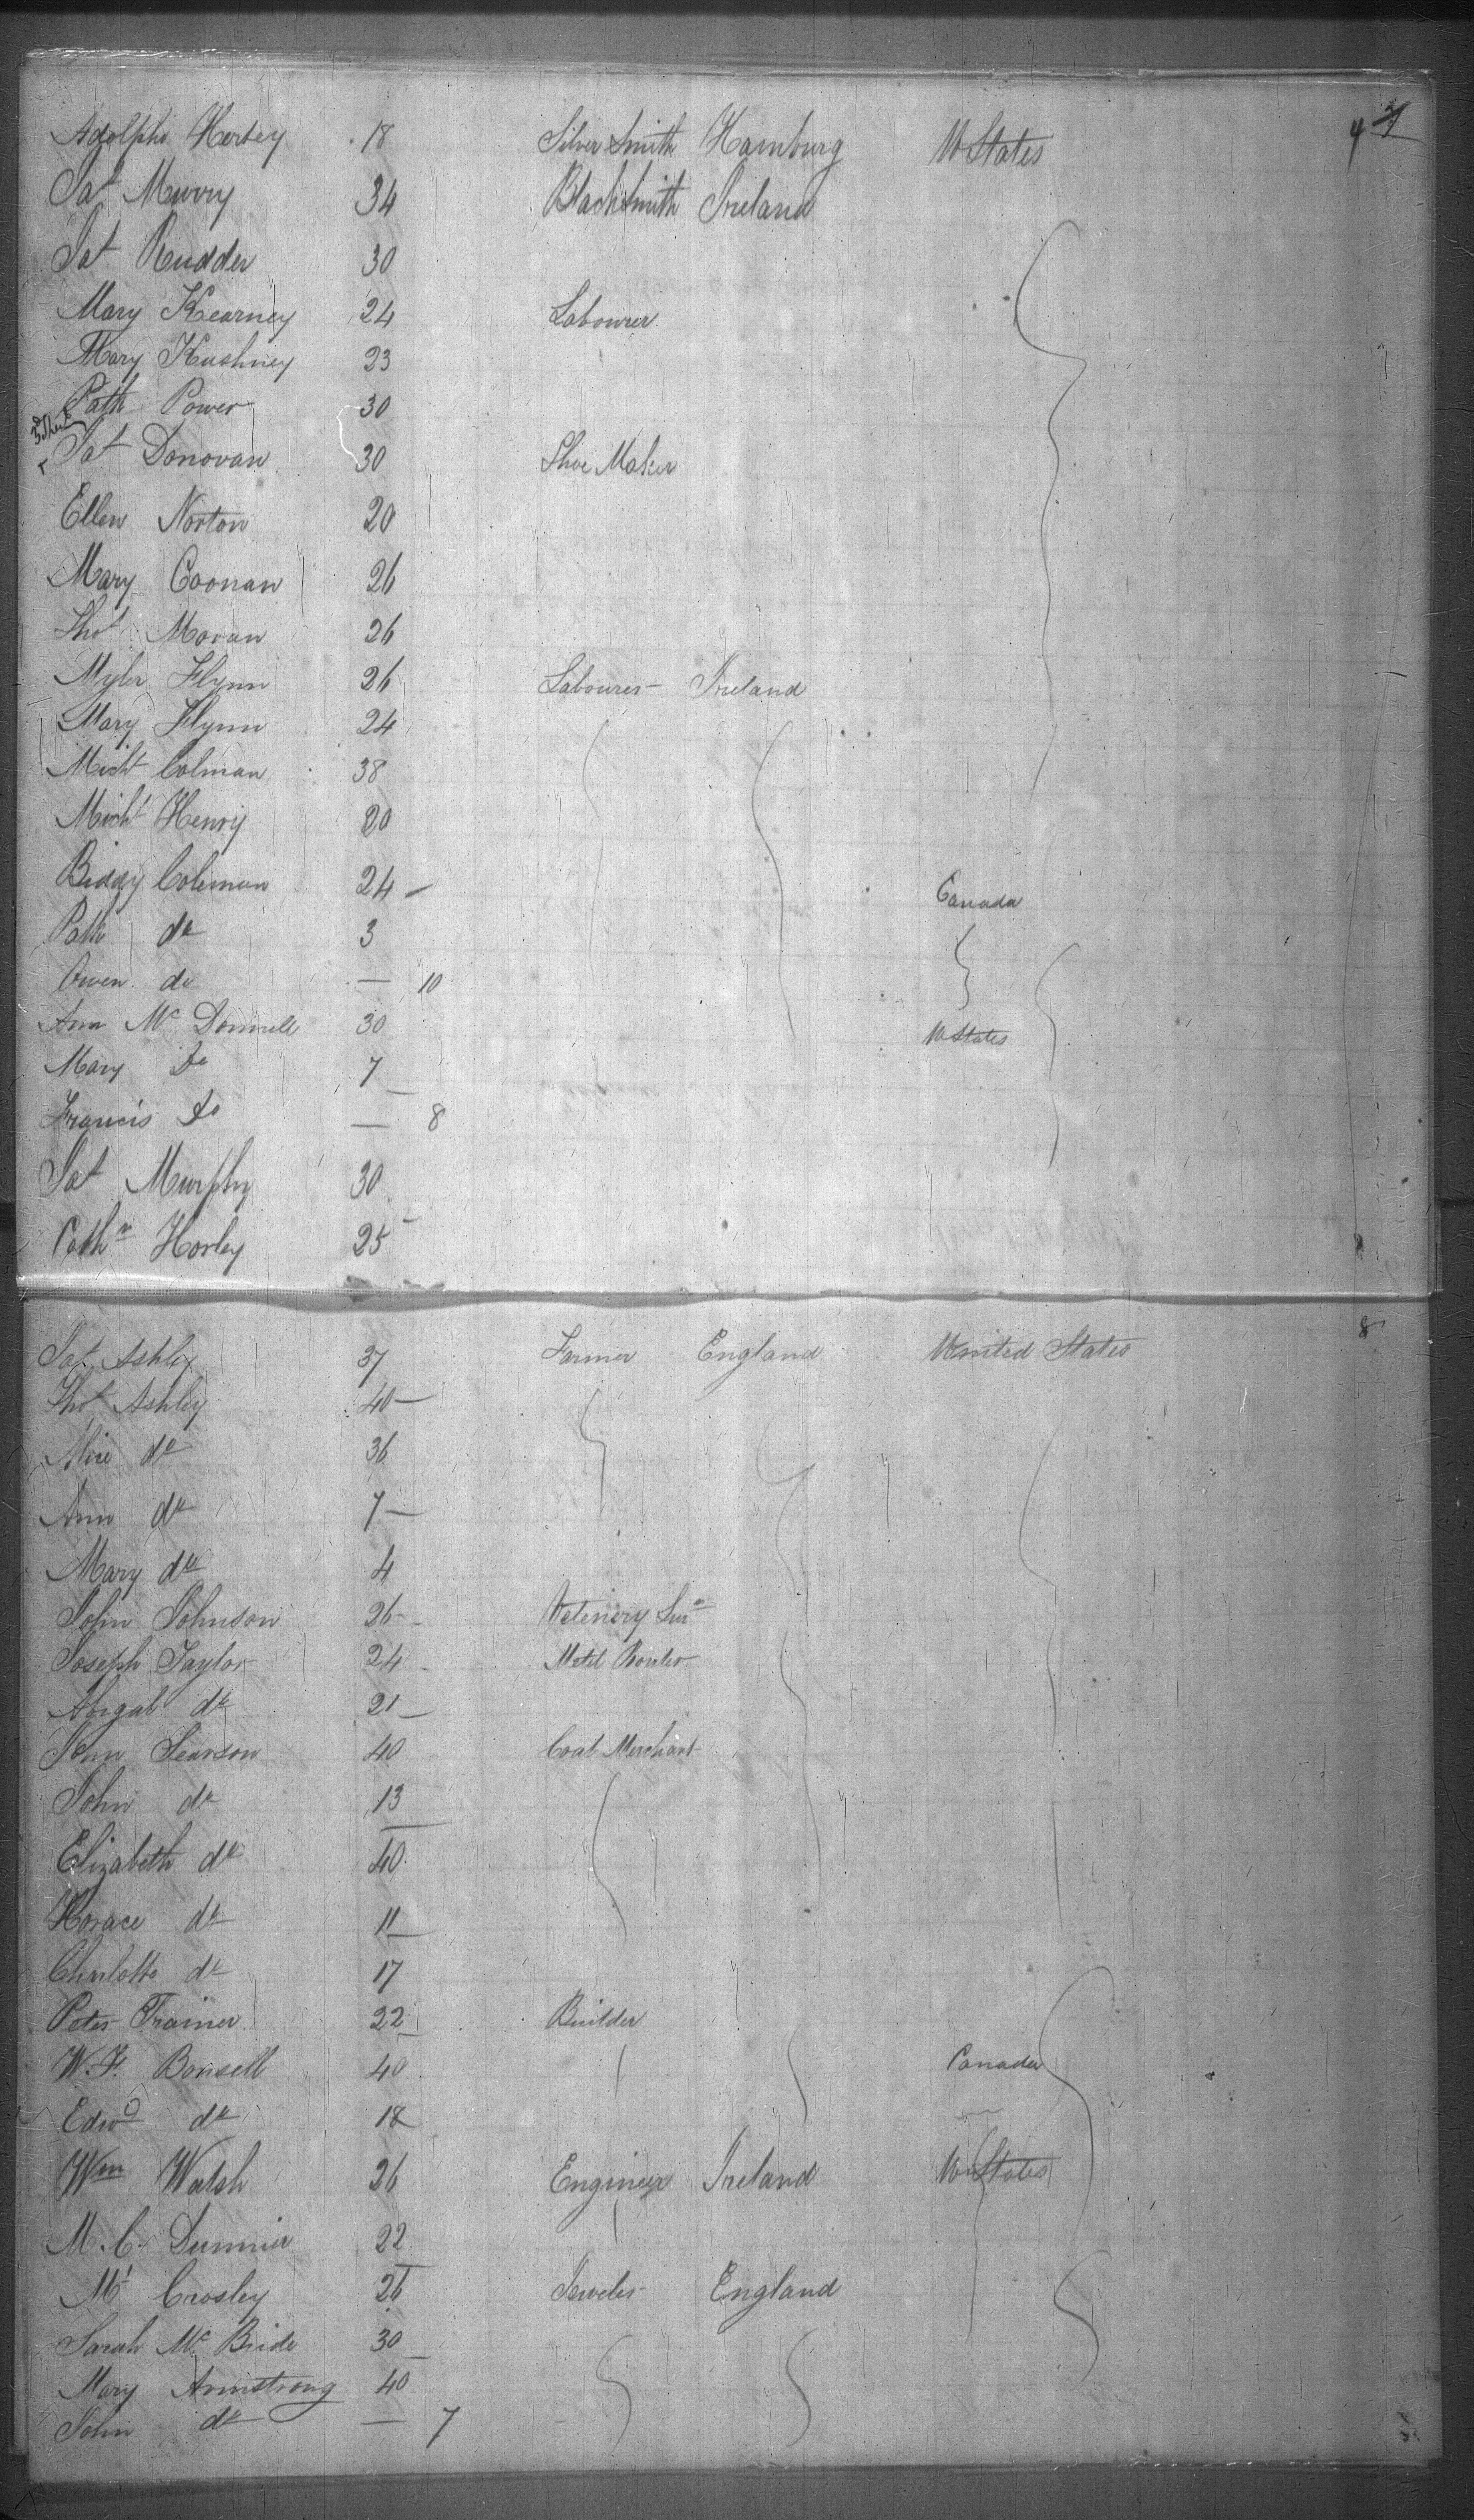 Adolphe Hersey 18 Silver Smith Hamburg U States
4
Jas Murry 34 Blacksmith Ireland
Jas Rudder 30
Mary Kearney 24 Labourer
Mary Kushney 23
Path Power 30
Jas Donovan 30 Shoe Maker
Ellen Norton 20
Mary Coonan 26
Thos Moran 26
Myler Flynn 26 Labourer Ireland
Mary Flynn 24
Michl Colman 38
Michl Henry 20
Biddy Coleman 24 — Canada
Path do 3
Owen do — 10
Ann Mc Donnell 30 U States
Mary Do 7
Francis Do — 8
Jas Murphy 30
Cathn Horley 25
8
Jas Ashley 37 Farmer England United States
Thos Ashley 40 —
Alice do 36
Ann do 7 —
Mary do 4
John Johnson 26 Vetinery Surn
Joseph Taylor 24 Metel
Abigal do 21
Pearson 40 Coal Merchant
John do 13
Elizabeth do 40
Horace do 11
Charlotte do 17
Peter Trainer 22 Builder
W. F. Bonsell 40 Canada
Edwd do 18
Wm Walsh 26 Engineer Ireland U States
M. C. 22
Mr Crosley 26 Jeweler England
Sarah Mc Bride 30
Mary Armstrong 40
John do — 7